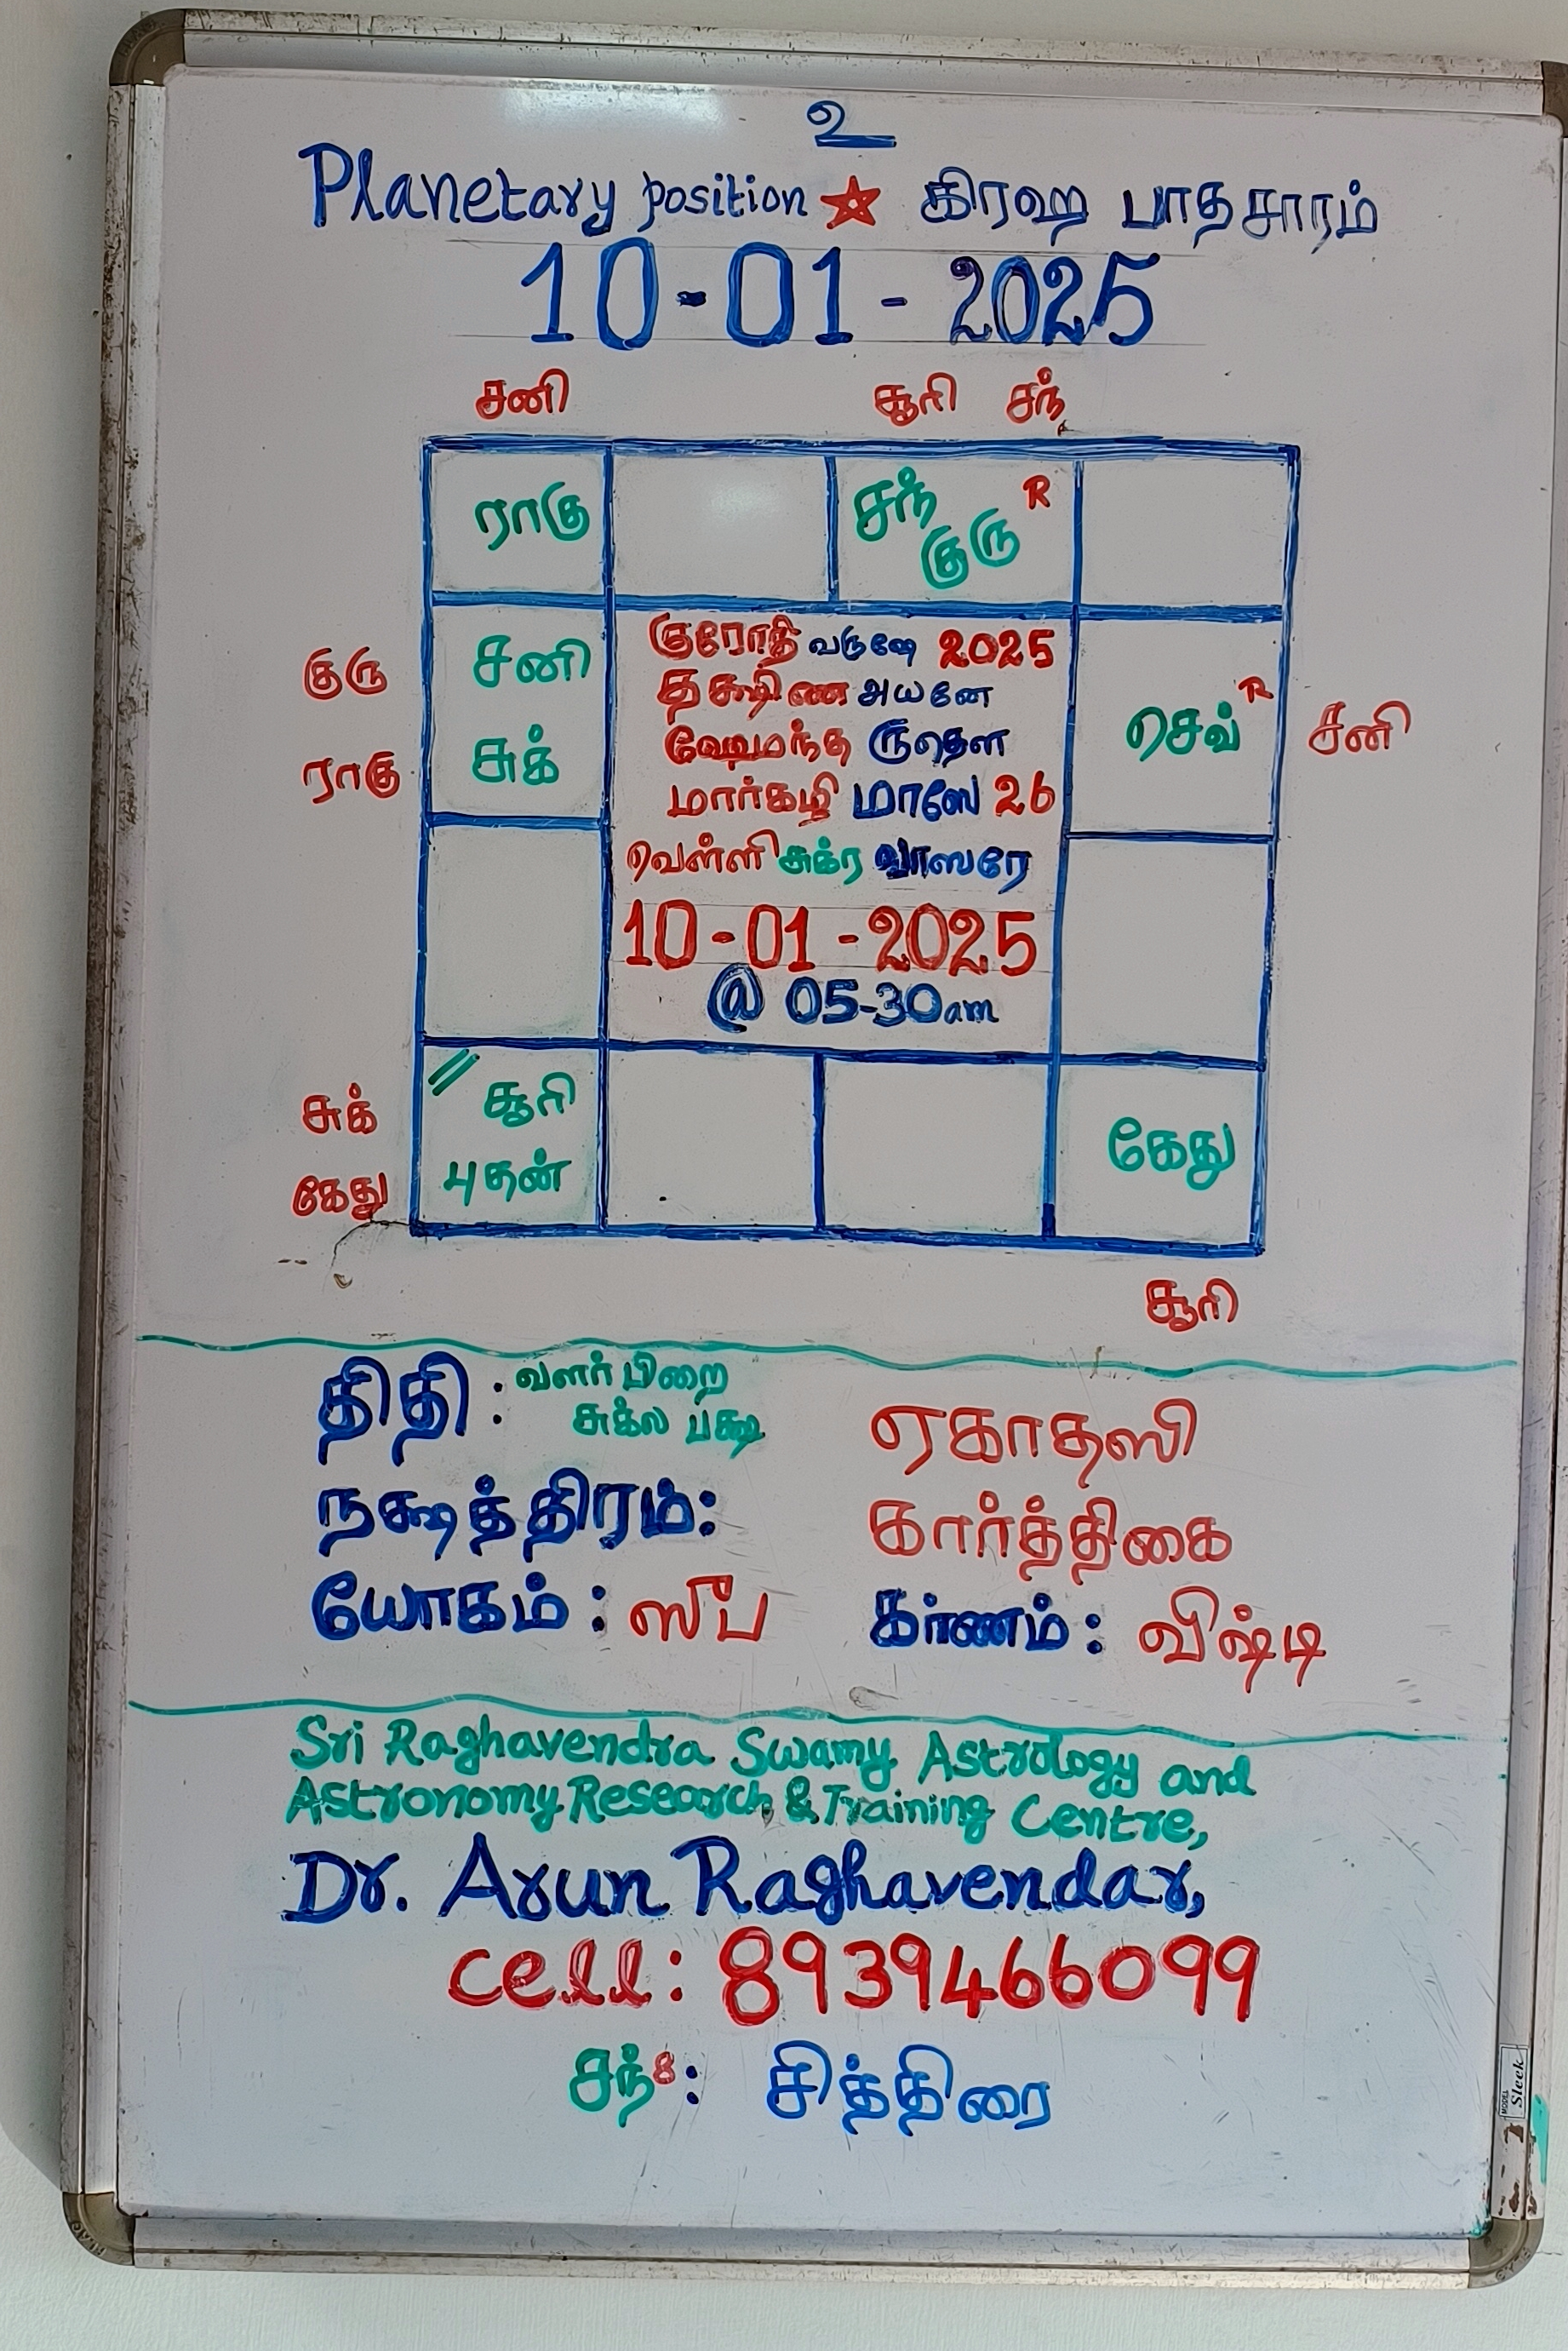 உ
Planetary position ☆ கிரஹ பாதசாரம்
10-01-2025
சனி சூரி சந்
ராகு சந் குரு R
குரு சனி
ராகு சுக்
செவ் R சனி
குரோதி வருஷே 2025
தக்ஷிண அயனே
ஹேமந்த ருதௌ
மார்கழி மாஸே 26
வெள்ளி சுக்ர வாஸரே
10-01-2025
@ 05-30am
சுக் // சூரி
கேது புதன்
கேது
சூரி
திதி : வளர்பிறை சுக்ல பக்ஷ ஏகாதஸி
நக்ஷத்திரம்: கார்த்திகை
யோகம் : ஸுப கர்ணம் : விஷ்டி
Sri Raghavendra Swamy Astrology and
Astronomy Research & Training Centre,
Dr. Arun Raghavendar,
cell: 8939466099
சந்8: சித்திரை
MODEL Sleek